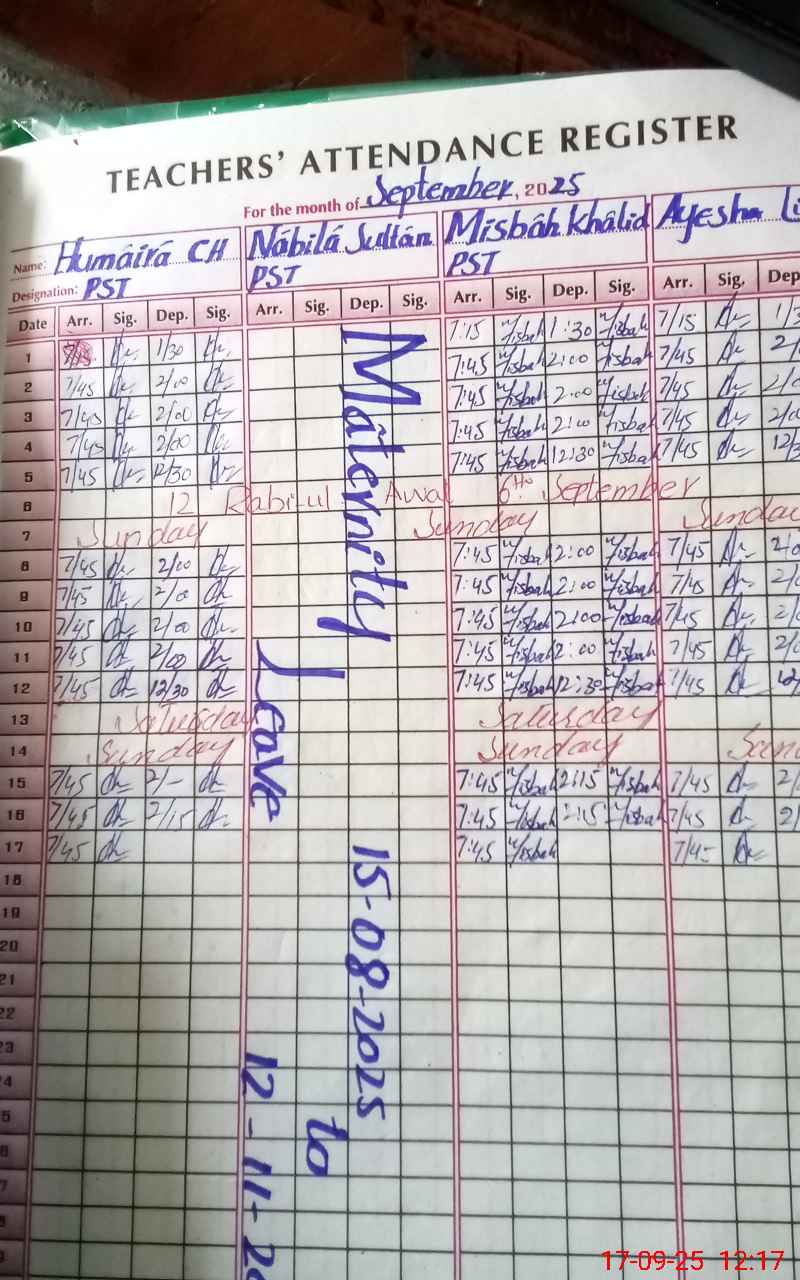 TEACHERS' ATTENDANCE REGISTER
For the month of September, 2025
Name: Humáirá CH Nábilá Sultán Misbáh khálid Ayesha
Designation: PST PST PST
Date Arr. Sig. Dep. Sig. Arr. Sig. Dep. Sig. Arr. Sig. Dep. Sig. Arr. Sig. Dep
1 7/15 1/30 7:15 Misbah 1:30 Misbah 7/15
2 7/45 2/00 7:45 Misbah 2:00 Misbah 7/45
3 7/45 2/00 7:45 Misbah 2:00 Misbah 7/45
4 7/45 2/00 7:45 Misbah 2:00 Misbah 7/45
5 7/45 12/30 7:45 Misbah 12:30 Misbah 7/45
6 12 Rabi-ul-Awal 6th September
7 Sunday Sunday Sunday
8 7/45 2/00 7:45 Misbah 2:00 Misbah 7/45
9 7/45 2/00 7:45 Misbah 2:00 Misbah 7/45
10 7/45 2/00 7:45 Misbah 2:00 Misbah 7/45
11 7/45 2/00 7:45 Misbah 2:00 Misbah 7/45
12 7/45 12/30 7:45 Misbah 12:30 Misbah 7/45
13 Saturday Saturday
14 Sunday Sunday
15 7/45 2/- 7:45 Misbah 2:15 Misbah 7/45
16 7/45 2/15 7:45 Misbah 2:15 Misbah 7/45
17 7/45 7:45 Misbah 7/45
18
19
20
21
Máternity Leave
15-08-2025
to
12-11-20
17-09-25 12:17